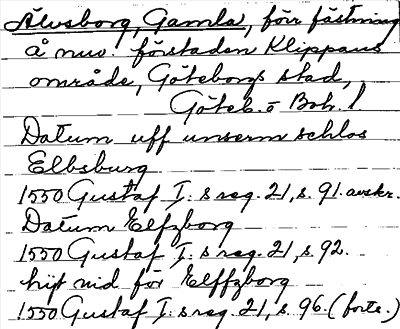 Älvsborg, Gamla, förr fästning
å nuv. förstaden Klippans
område, Göteborgs stad,
Göteb. o Boh. l
Datum uff unserm schlos
Elbsburg
1550 Gustaf I:s reg. 21, s. 91. avskr.
Datum Elfzborg
1550 Gustaf I:s reg. 21, s. 92.
hijt nid för Elffzborg
1550 Gustaf I:s reg. 21, s. 96. (forts.)